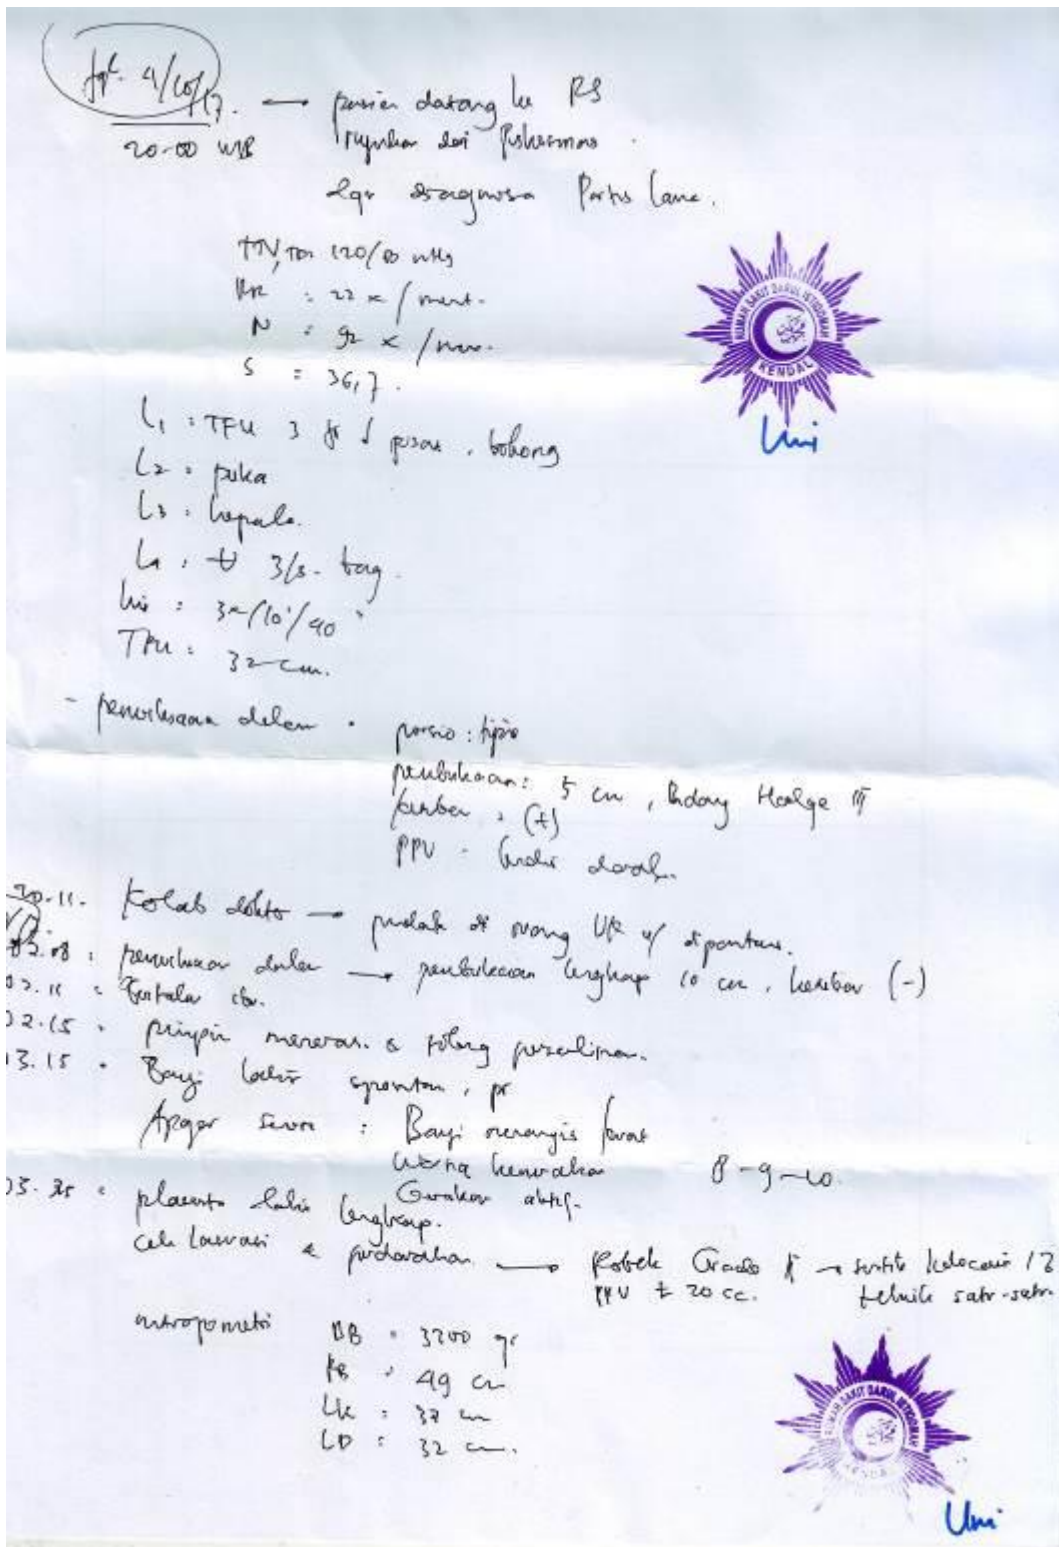 tgl. 4/10/17. → pasien datang ke RS
20.00 WIB rujukan dari Puskesmas.
dgn diagnosa Partus lama.
RUMAH SAKIT DARUL ISTIQOMAH
KENDAL
TTV, TD: 120/80 mmHg
RR : 22 x / menit.
N : 92 x / men.
S : 36,7.
L1 : TFU 3 jr ↓ pusar, bokong
L2 : puka
L3 : kepala.
L4 : U 3/5. bag.
his : 3x/10'/40"
TFU : 32 cm.
- pemeriksaan dalam : porsio : tipis
pembukaan : 5 cm, bidang Hodge III
(+)
PPV : lendir darah.
20.11. Kolab dokter → pindah di ruang VK u/ dipantau.
02.08 : pemeriksaan dalam → pembukaan lengkap 10 cm, (-)
02.15 : pimpin meneran & tolong persalinan.
03.15 : Bayi lahir spontan, pr
Apgar Score : Bayi menangis kuat
Warna kemerahan 8-9-10.
Gerakan aktif.
03.35 : placenta lahir lengkap.
cek laserasi & perdarahan → Robek Grade II →
PPV ± 20 cc. tehnik satu-satu.
antropometri BB : 3200 gr
PB : 49 cm
LK : 32 cm
LD : 32 cm.
RUMAH SAKIT DARUL ISTIQOMAH
KENDAL